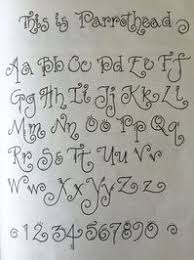 This is Parrothead
Aa Bb Cc Dd Ee Ff
Gg Hh Ii Jj Kk Ll
Mm Nn Oo Pp Qq
Rr Ss Tt Uu Vv
Ww Xx Yy Zz
1234567890